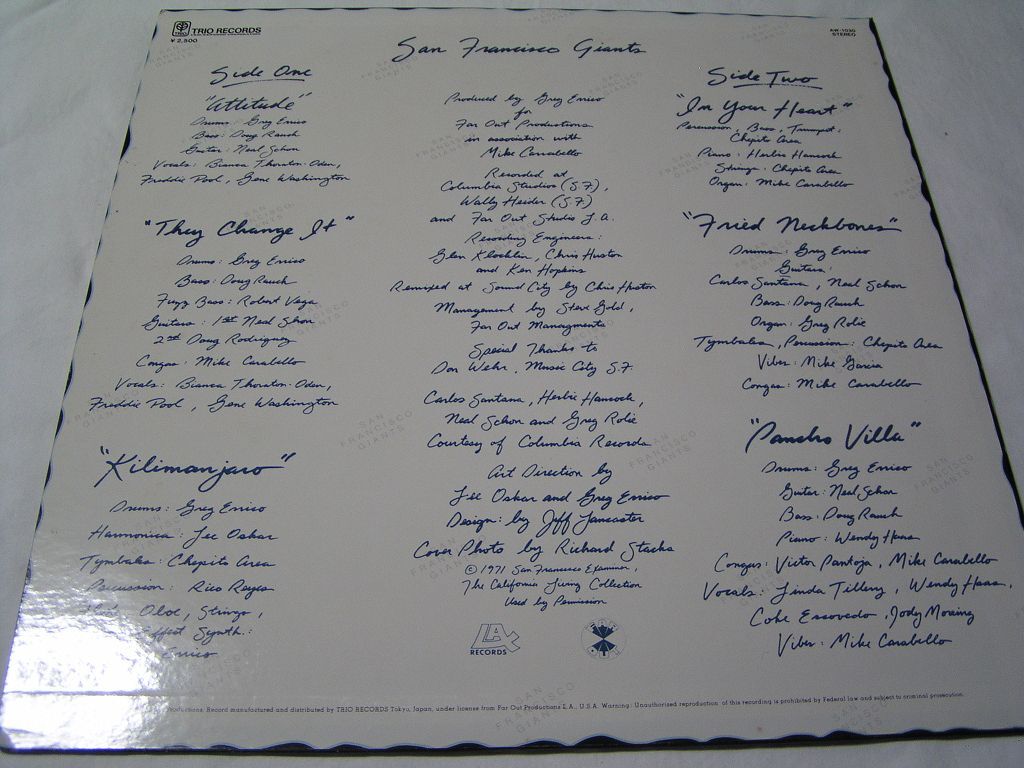 TRIO RECORDS
¥2,500
AW-1030
STEREO
San Francisco Giants
Side One
"Attitude"
Drums: Greg Errico
Bass: Doug Rauch
Guitar: Neal Schon
Vocals: Bianca Thornton-Oden,
Freddie Pool, Gene Washington
"They Change It"
Drums: Greg Errico
Bass: Doug Rauch
Fuzz Bass: Robert Vega
Guitars: 1st Neal Shon
2nd Doug Rodriguez
Congas: Mike Carabello
Vocals: Bianca Thornton-Oden,
Freddie Pool, Gene Washington
"Kilimanjaro"
Drums: Greg Errico
Harmonica: Lee Oskar
Tymbales: Chepito Area
Percussion: Rico Reyes
Oboe, Strings,
Effect Synth.:
Errico
Produced by Greg Errico
for
Far Out Productions
in association with
Mike Carrabello
Recorded at
Columbia Studios (S.F.),
Wally Heider (S.F.)
and Far Out Studio L.A.
Recording Engineers:
Glen Kolotkin, Chris Huston
and Ken Hopkins
Remixed at Sound City by Chris Huston
Management by Steve Gold,
Far Out Managments
Special Thanks to
Don Wehr, Music City S.F.
Carlos Santana, Herbie Hancock,
Neal Schon and Greg Rolie
Courtesy of Columbia Records
Art Direction by
Lee Oskar and Greg Errico
Design: by Jeff Lancaster
Cover Photo by Richard Stacks
© 1971 San Francisco Examiner,
The California Living Collection
Used by Permission
LAX
RECORDS
Side Two
"In Your Heart"
Percussion, Bass, Trumpet:
Chepito Area
Piano: Herbie Hancock
Strings: Chepito Area
Organ: Mike Carabello
"Fried Neckbones"
Drums: Greg Errico
Guitars:
Carlos Santana, Neal Schon
Bass: Doug Rauch
Organ: Greg Rolie
Tymbales, Percussion: Chepito Area
Vibes: Mike Garcia
Congas: Mike Carabello
"Pancho Villa"
Drums: Greg Errico
Guitar: Neal Schon
Bass: Doug Rauch
Piano: Wendy Haas
Congas: Victor Pantoja, Mike Carabello
Vocals: Linda Tillery, Wendy Haas,
Coke Escovedo, Jody Moreing
Vibes: Mike Carabello
SAN FRANCISCO GIANTS
Productions. Record manufactured and distributed by TRIO RECORDS Tokyo, Japan, under license from Far Out Productions L.A., U.S.A. Warning: Unauthorised reproduction of this recording is prohibited by Federal law and subject to criminal prosecution.